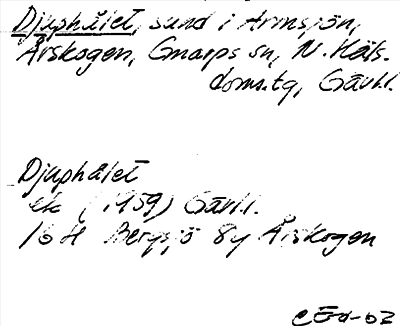 Djuphålet, sund i Armsjön,
Årskogen, Gnarps sn, N. Häls.
doms.tg, Gävl.l.
Djuphålet
ek (1959) Gävl.l.
16 H Bergsjö 8y Årskogen